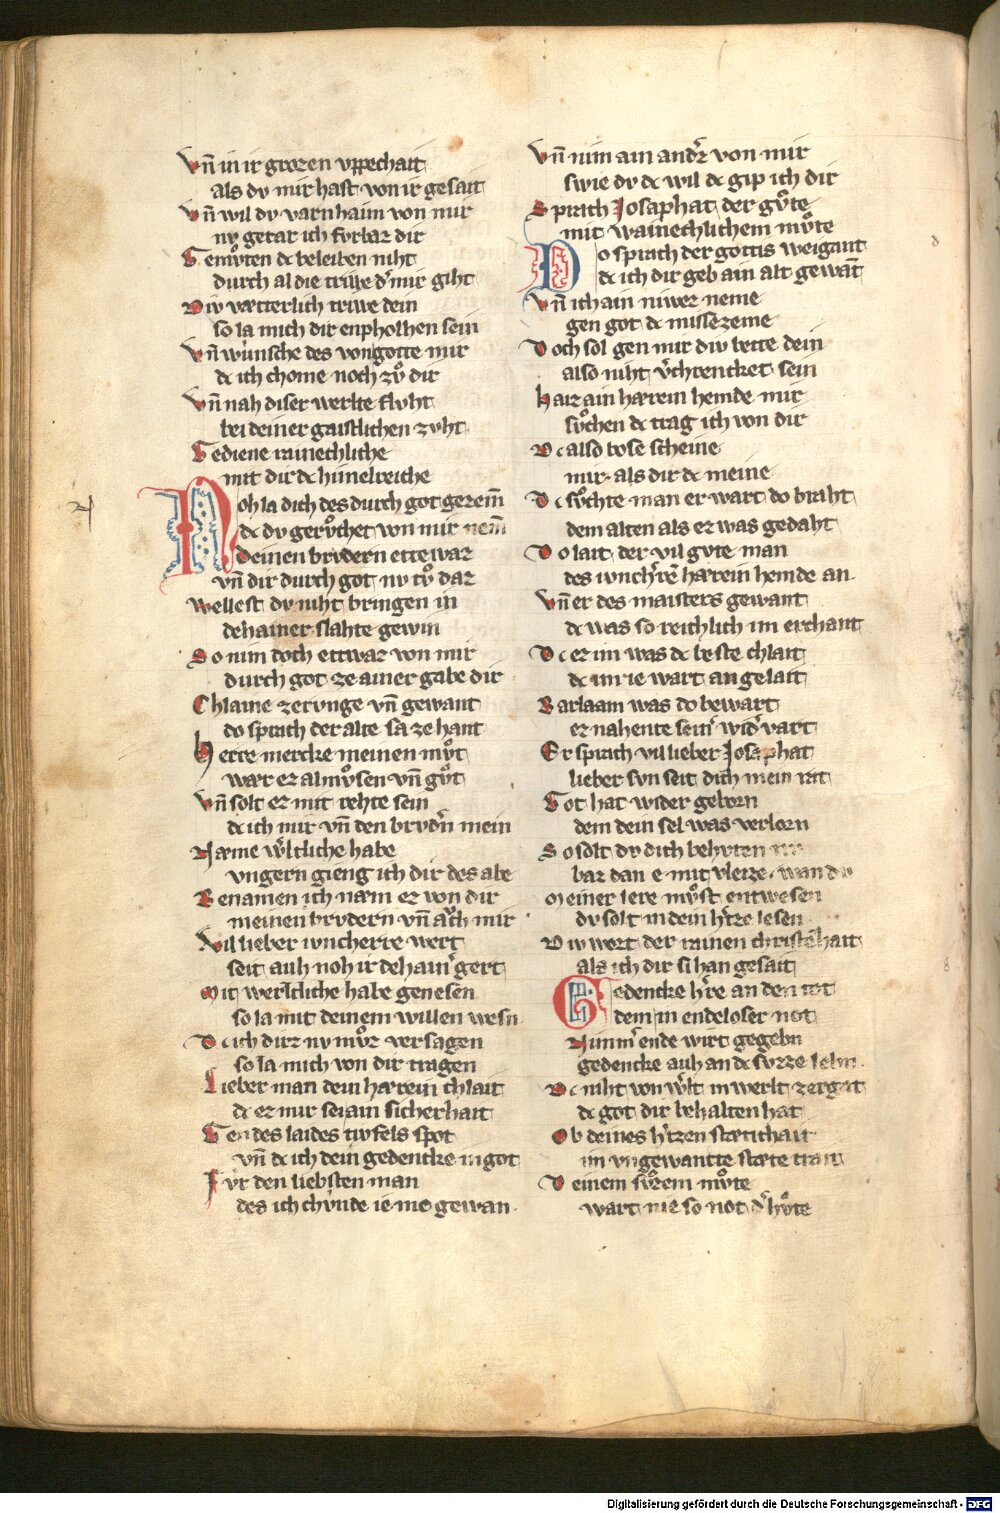 Vn̄ in ir grozen vppechait
als dv mir hast von ir gesait
Vn̄ wil dv varn haim von mir
nv getar ich fvrbaz dir
Gemvͦten dc beleiben niht
durch al die triwe d' mir giht
Div vætterlich triwe dein
so la mich dir enpholhen sein
Vn̄ wunsche des von gotte mir
dc ich chome noch zvͦ dir
Vn̄ nah diser werlte flvht
bei deiner gaistlichen zvht
Gediene rainechliche
mit dir dc himelreiche
Noh la dich des durch got gezem̄
dc dv gervͦchet von mir nem̄
deinen brvdern ettewaz
vn̄ dir durch got nv tvͦ daz
Wellest dv niht bringen in
dehainer slahte gewin
So nim doch ettwaz von mir
durch got ze ainer gabe dir
Chlaine zervnge vn̄ gewant
do sprach der alte sa ze hant
Herre mercke meinen mvͦt
wær ez almvͦsen vn̄ gvͦt
Vn̄ solt ez mit rehte sein
dc ich mir vn̄ den brvdn̄ mein
Næme wͤltliche habe
vngern gieng ich dir des abe
Benamen ich nam ez von dir
meinen brvdern vn̄ avͦch mir
Vil lieber ivncherre wert
seit auh noh ir dehain' gert
Mit werltliche habe genesen
so la mit deinem willen wesn
Dc ich dirz nv mvͦz versagen
so la mich von dir tragen
Lieber man dein hærein chlait
dc ez mir sei ain sicherhait
Gen des laides tivfels spot
vn̄ dc ich dein gedencke in got
Fvͤr den liebsten man
des ich chvnde ie me gewan
Vn̄ nim ain andz von mir
swie dv dc wil dc gip ich dir
Sprach Josaphat der gvͦte
mit wainechlichem mvͦte
Do sprach der gottis weigant
dc ich dir geb ain alt gewāt
Vn̄ ich ain niwez neme
gen got dc missezeme
Doch sol gen mir div bette dein
also niht v'chrencket sein
Haiz ain hærein hemde mir
svͦchen dc trag ich von dir
Dc also bose scheine
mir als dir dc meine
Dc svͦchte man ez wart do braht
dem alten als ez was gedaht
Do lait der vil gvte man
des ivnch'rē hærein hemde an
Vn̄ er des maisters gewant
dc was so reichlich im erchant
Dc ez im was dc beste chlait
dc im ie wart an gelait
Barlaam was do bewart
ez nahente sein' wid'vart
Er sprach vil lieber Josaphat
lieber svn seit dich mein rat
Got hat wider geborn
dem dein sel was verlorn
So solt dv dich behvten
baz dan e mit vleize wan dv
Meiner lere mvͦst entwesen
dv solt in dein h'tze lesen
Div wort der rainen christēhait
als ich dir si han gesait
Gedencke h're an den tot
dem in endeloser not
Nimm' ende wirt gegebn
gedencke auh an dc svzze lebn
Dc niht von wͤlt in werlt zergat
dc got dir behalten hat
Ob deines h'tzen stætichait
im vngewantte stæte trait
Deinem svͦzem mvͦte
wart nie so not d' hvͦte
Digitalisierung gefördert durch die Deutsche Forschungsgemeinschaft - DFG